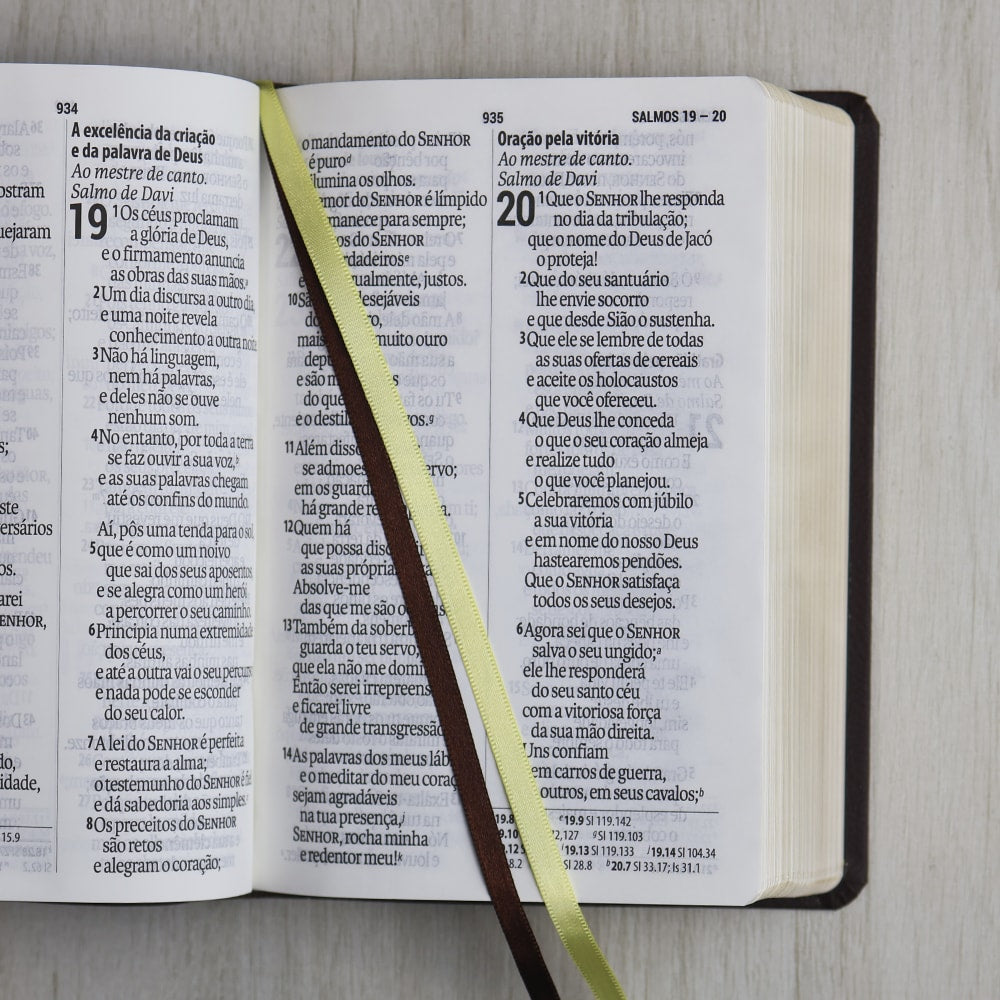 934
ostram
uejaram
s;
ste
versários
os.
arei
ENHOR,
do,
idade,
15.9
A excelência da criação
e da palavra de Deus
Ao mestre de canto.
Salmo de Davi
19 1Os céus proclamam
a glória de Deus,
e o firmamento anuncia
as obras das suas mãos.a
2Um dia discursa a outro dia,
e uma noite revela
conhecimento a outra noit
3Não há linguagem,
nem há palavras,
e deles não se ouve
nenhum som.
4No entanto, por toda a terra
se faz ouvir a sua voz,b
e as suas palavras chegam
até os confins do mundo.
Aí, pôs uma tenda para o sol,
5que é como um noivo
que sai dos seus aposentos,
e se alegra como um herói
a percorrer o seu caminho.
6Principia numa extremidade
dos céus,
e até a outra vai o seu percurs
e nada pode se esconder
do seu calor.
7A lei do SENHOR é perfeita
e restaura a alma;
o testemunho do SENHOR é
e dá sabedoria aos simples.
8Os preceitos do SENHOR
são retos
e alegram o coração;
935
SALMOS 19 – 20
o mandamento do SENHOR
é purod
ilumina os olhos.
emor do SENHOR é límpido
manece para sempre;
os do SENHOR
rdadeirose
e ualmente, justos.
10Sã desejáveis
do ro,
mais muito ouro
depu
e são m s
do que
e o destil vos.g
11Além disso servo;
se admoes
em os guard
há grande re pa.
12Quem há
que possa disc
as suas própria
Absolve-me
das que me são oc as
13Também da soberb
guarda o teu servo,
que ela não me domi
Então serei irrepreens
e ficarei livre
de grande transgressão
14As palavras dos meus láb
e o meditar do meu coraç
sejam agradáveis
na tua presença,j
SENHOR, rocha minha
e redentor meu!k
Oração pela vitória
Ao mestre de canto.
Salmo de Davi
20 1Que o SENHOR lhe responda
no dia da tribulação;
que o nome do Deus de Jacó
o proteja!
2Que do seu santuário
lhe envie socorro
e que desde Sião o sustenha.
3Que ele se lembre de todas
as suas ofertas de cereais
e aceite os holocaustos
que você ofereceu.
4Que Deus lhe conceda
o que o seu coração almeja
e realize tudo
o que você planejou.
5Celebraremos com júbilo
a sua vitória
e em nome do nosso Deus
hastearemos pendões.
Que o SENHOR satisfaça
todos os seus desejos.
6Agora sei que o SENHOR
salva o seu ungido;a
ele lhe responderá
do seu santo céu
com a vitoriosa força
da sua mão direita.
Uns confiam
em carros de guerra,
outros, em seus cavalos;b
19.8 e19.9 Sl 119.142
9.10 2,127 gSl 119.103
9.12 S i19.13 Sl 119.133 j19.14 Sl 104.34
8.2 Sl 28.8 b20.7 Sl 33.17; Is 31.1